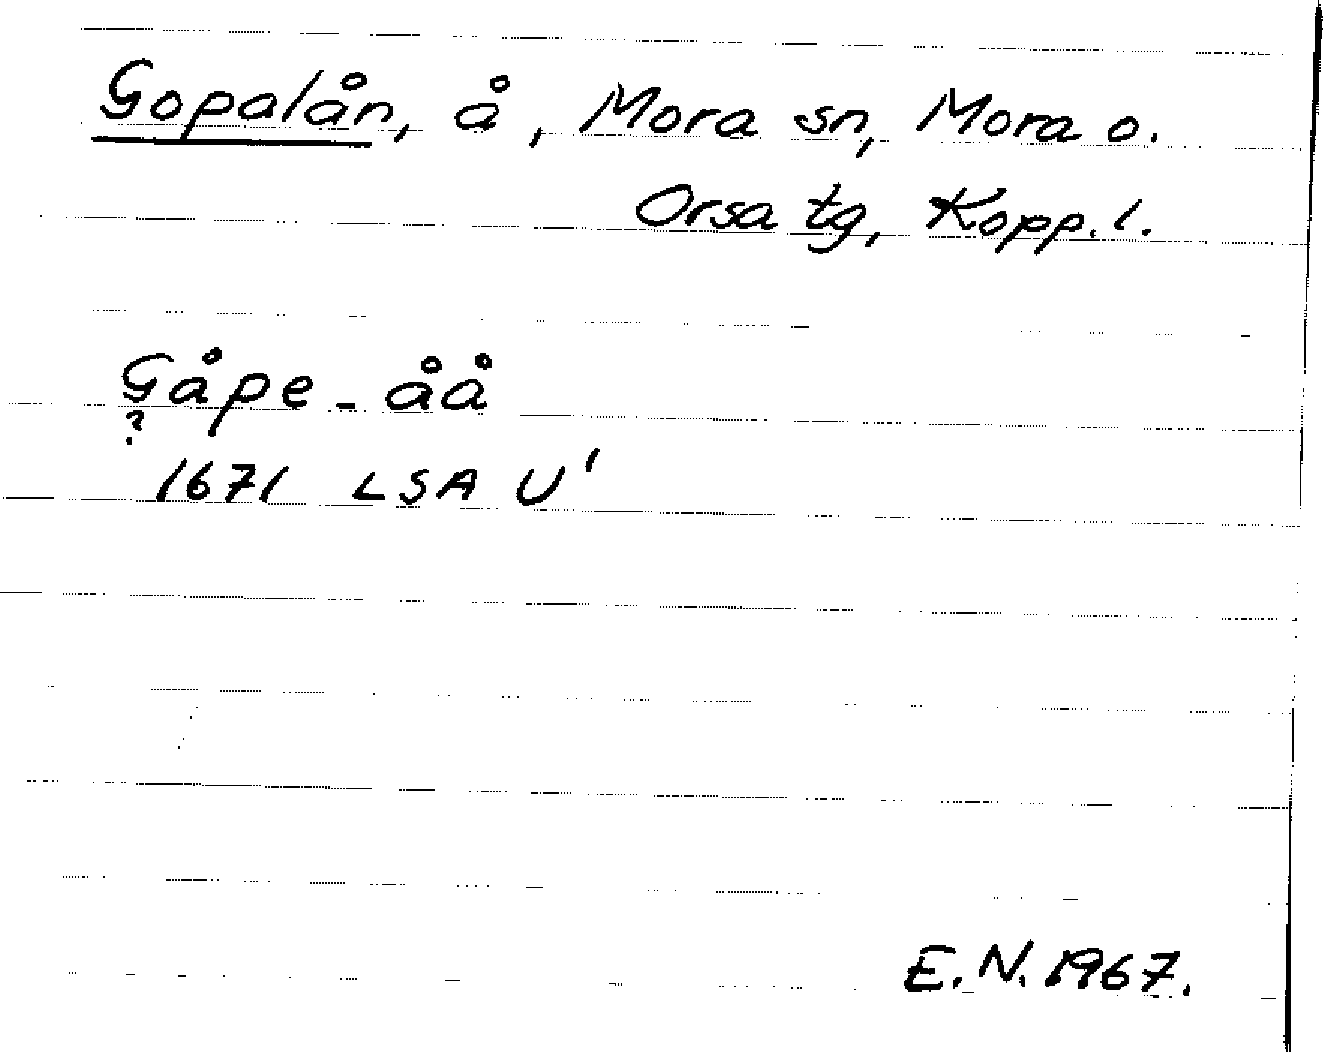 Gopalån, å, Mora sn, Mora o.
Orsa tg, Kopp. l.
Gåpe-åå
?
1671 LSA U'
E.N. 1967.